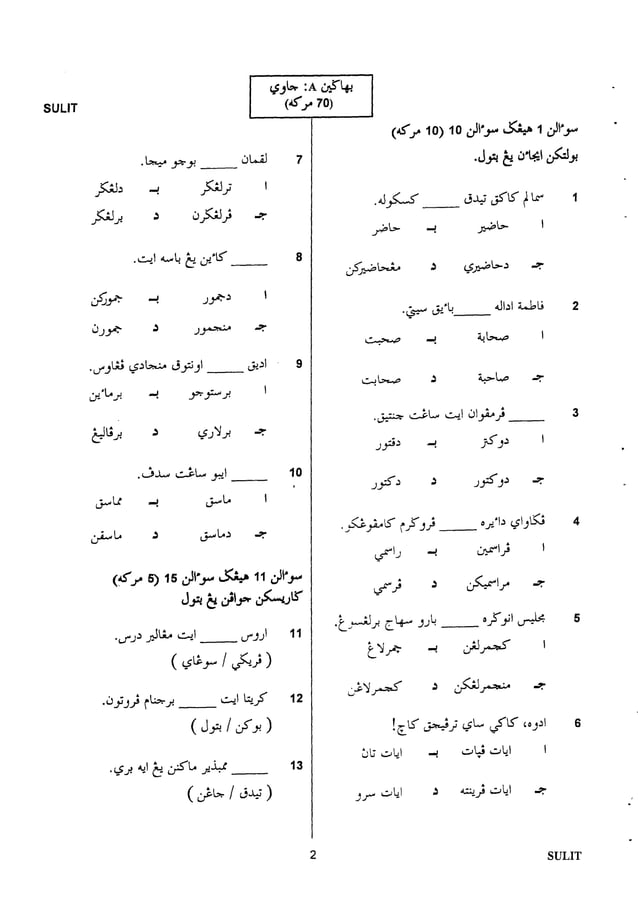 SULIT
بهاݢين A: جاوي
(70 مركه)
سوءالن 1 هيڠݢ سوءالن 10 (10 مركه)
بولتكن ايجاءن يڠ بتول.
1 سمالم كاكق تيدق _____ كسكوله.
ا حاضير ب حاضر
ج دحاضيري د مڠحاضيركن
2 فاطمة اداله _____ باءيق سيتي.
ا صحابة ب صحبت
ج صاحبة د صحابت
3 _____ ڤرمڤوان ايت ساڠت چنتيق.
ا دوكتر ب دقتور
ج دوكتور د دكتور
4 ڤݢاواي داءيره _____ ڤروݢرم كامڤوڠكو.
ا ڤراسمين ب راسمي
ج مراسميكن د ڤرسمي
5 مجليس انوݢره _____ بارو سهاج برلڠسوڠ.
ا كجمرلڠن ب جمرلاڠ
ج منجمرلڠكن د كجمرلاڠن
6 ادوه، كاكي ساي ترڤيجق كاچ!
ا ايات ڤپات ب ايات تاڽ
ج ايات ڤرينته د ايات سرو
7 لقمان _____ بوچو ميجا.
ا ترلڠݢر ب دلڠݢر
ج ڤرلڠݢرن د برلڠݢر
8 _____ كاءين يڠ باسه ايت.
ا دجمور ب جموركن
ج منجمور د جمورن
9 اديق _____ اونتوق منجادي ڤڠاوس.
ا برستوجو ب برماءين
ج برلاري د برڤاليڠ
10 _____ ايبو ساڠت سدڤ.
ا ماسق ب مماسق
ج دماسق د ماسقن
سوءالن 11 هيڠݢ سوءالن 15 (5 مركه)
ݢاريسكن جواڤن يڠ بتول
11 اروس _____ ايت مڠالير درس.
( ڤريݢي / سوڠاي )
12 كريتا ايت _____ برجنام ڤروتون.
( بوكن / بتول )
13 _____ ممبذير ماكنن يڠ ايه بري.
( تيدق / جاڠن )
2
SULIT